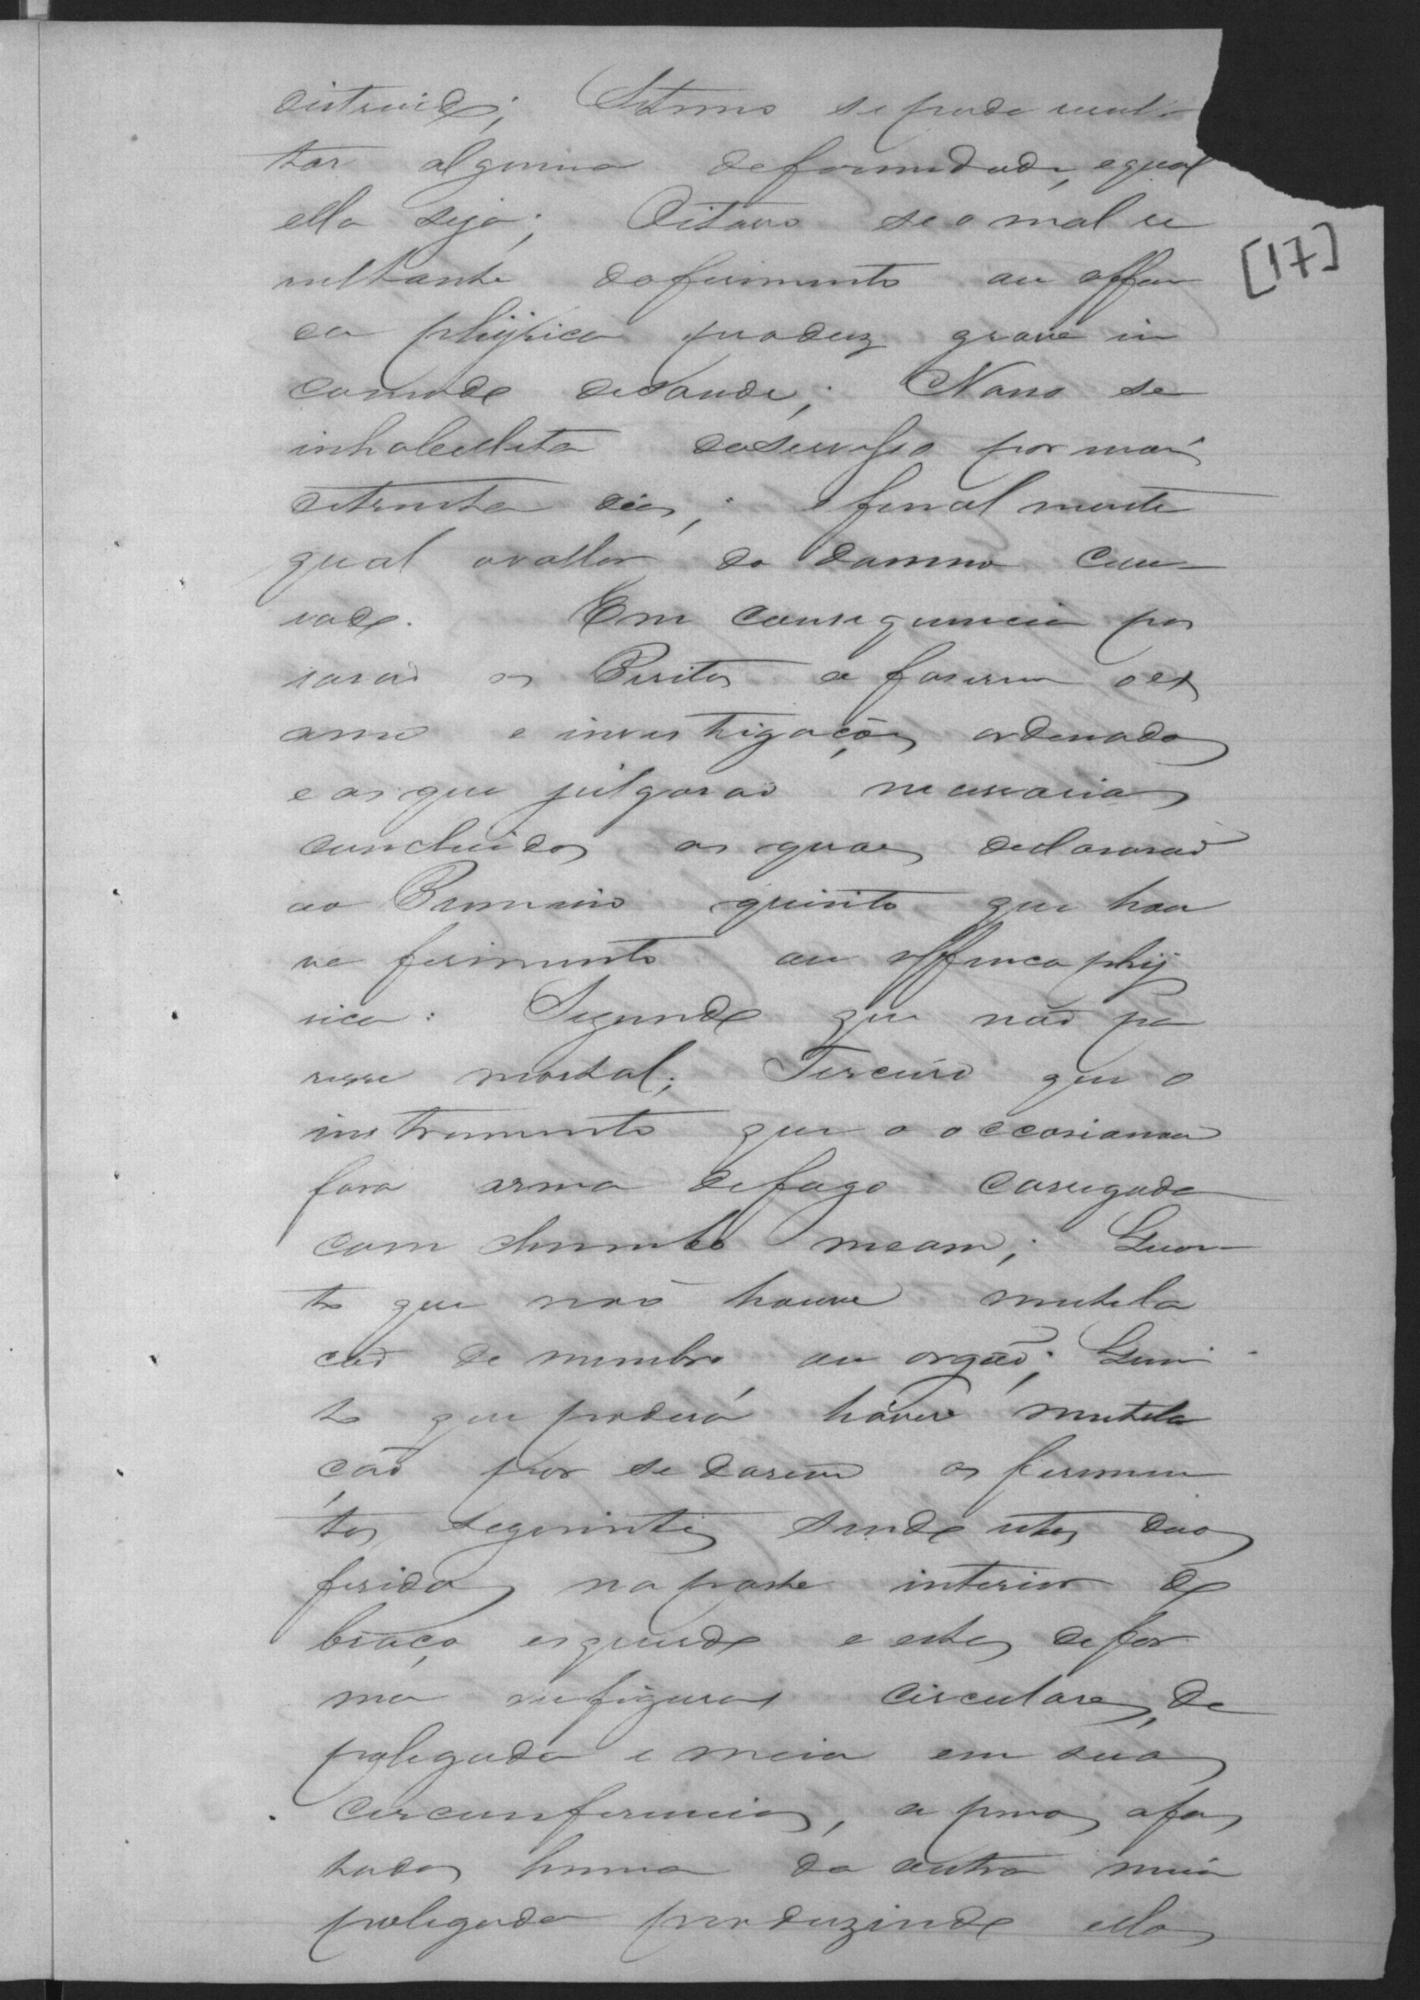 distruido; Setimo se pode resul
tar alguma deformidade, e qual
ella seja; Oitavo se o mal re
zultante do ferimento ou offen
ca phÿzica produz grave in
comodo de saude; Nono se
inhabellita do servisso por mais
de trinta dias; e finalmente
qual o vallor do damno cau
zado. Em consequencia pas
sarao os Peritos a fazerem o ex
ame e investigaçoes ordenadas
e as que julgarao necessarias
concluidas as quaes declararaõ
ao Primeiro quizito que hou
ve ferimento ou offenca phÿ
zica: Segundo que naõ pa
resse mortal; Terceiro que o
instrumento que o occasionou
fora arma de fogo carregada
com chumbo ; Quar
to que naõ houve mutila
caõ de membro ou orgaõ; Quin
to que poderá háver mutila
çaõ por se darem os ferimen
tos seguintes sendo estes duas
feridas na parte interior do
braço esquerdo e estas de for
ma ou figuras circulares, de
polegada e meia em suas
circunferencias, a penas afas
tadas huma da outra meia
polegada produzindo ellas
[17]